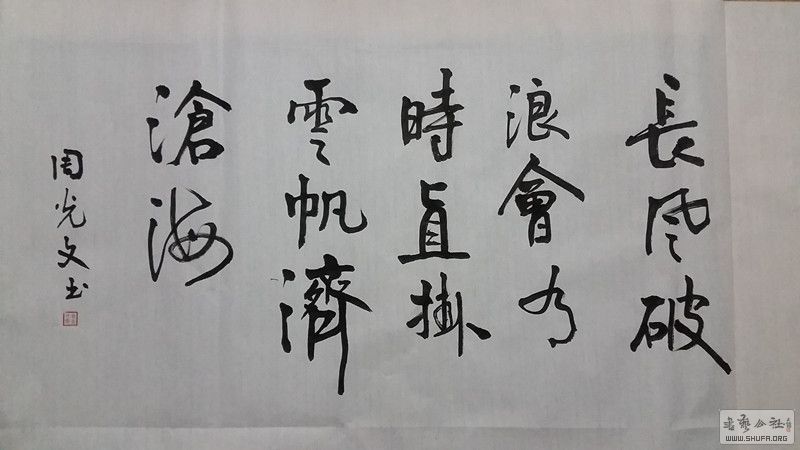 長風破
浪會有
時直掛
雲帆濟
滄海
周光文书
書藝公社
WWW.SHUFA.ORG